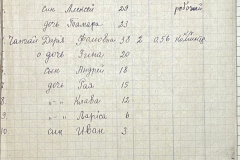 сын Алексей 29 рабочий
дочь Тамара 23
Дарья 38 2 0,56
дочь Зина 20
сын Андрей 18
дочь Гая 15
" Клава 12
9 " Лариса 6
10 сын Иван 3